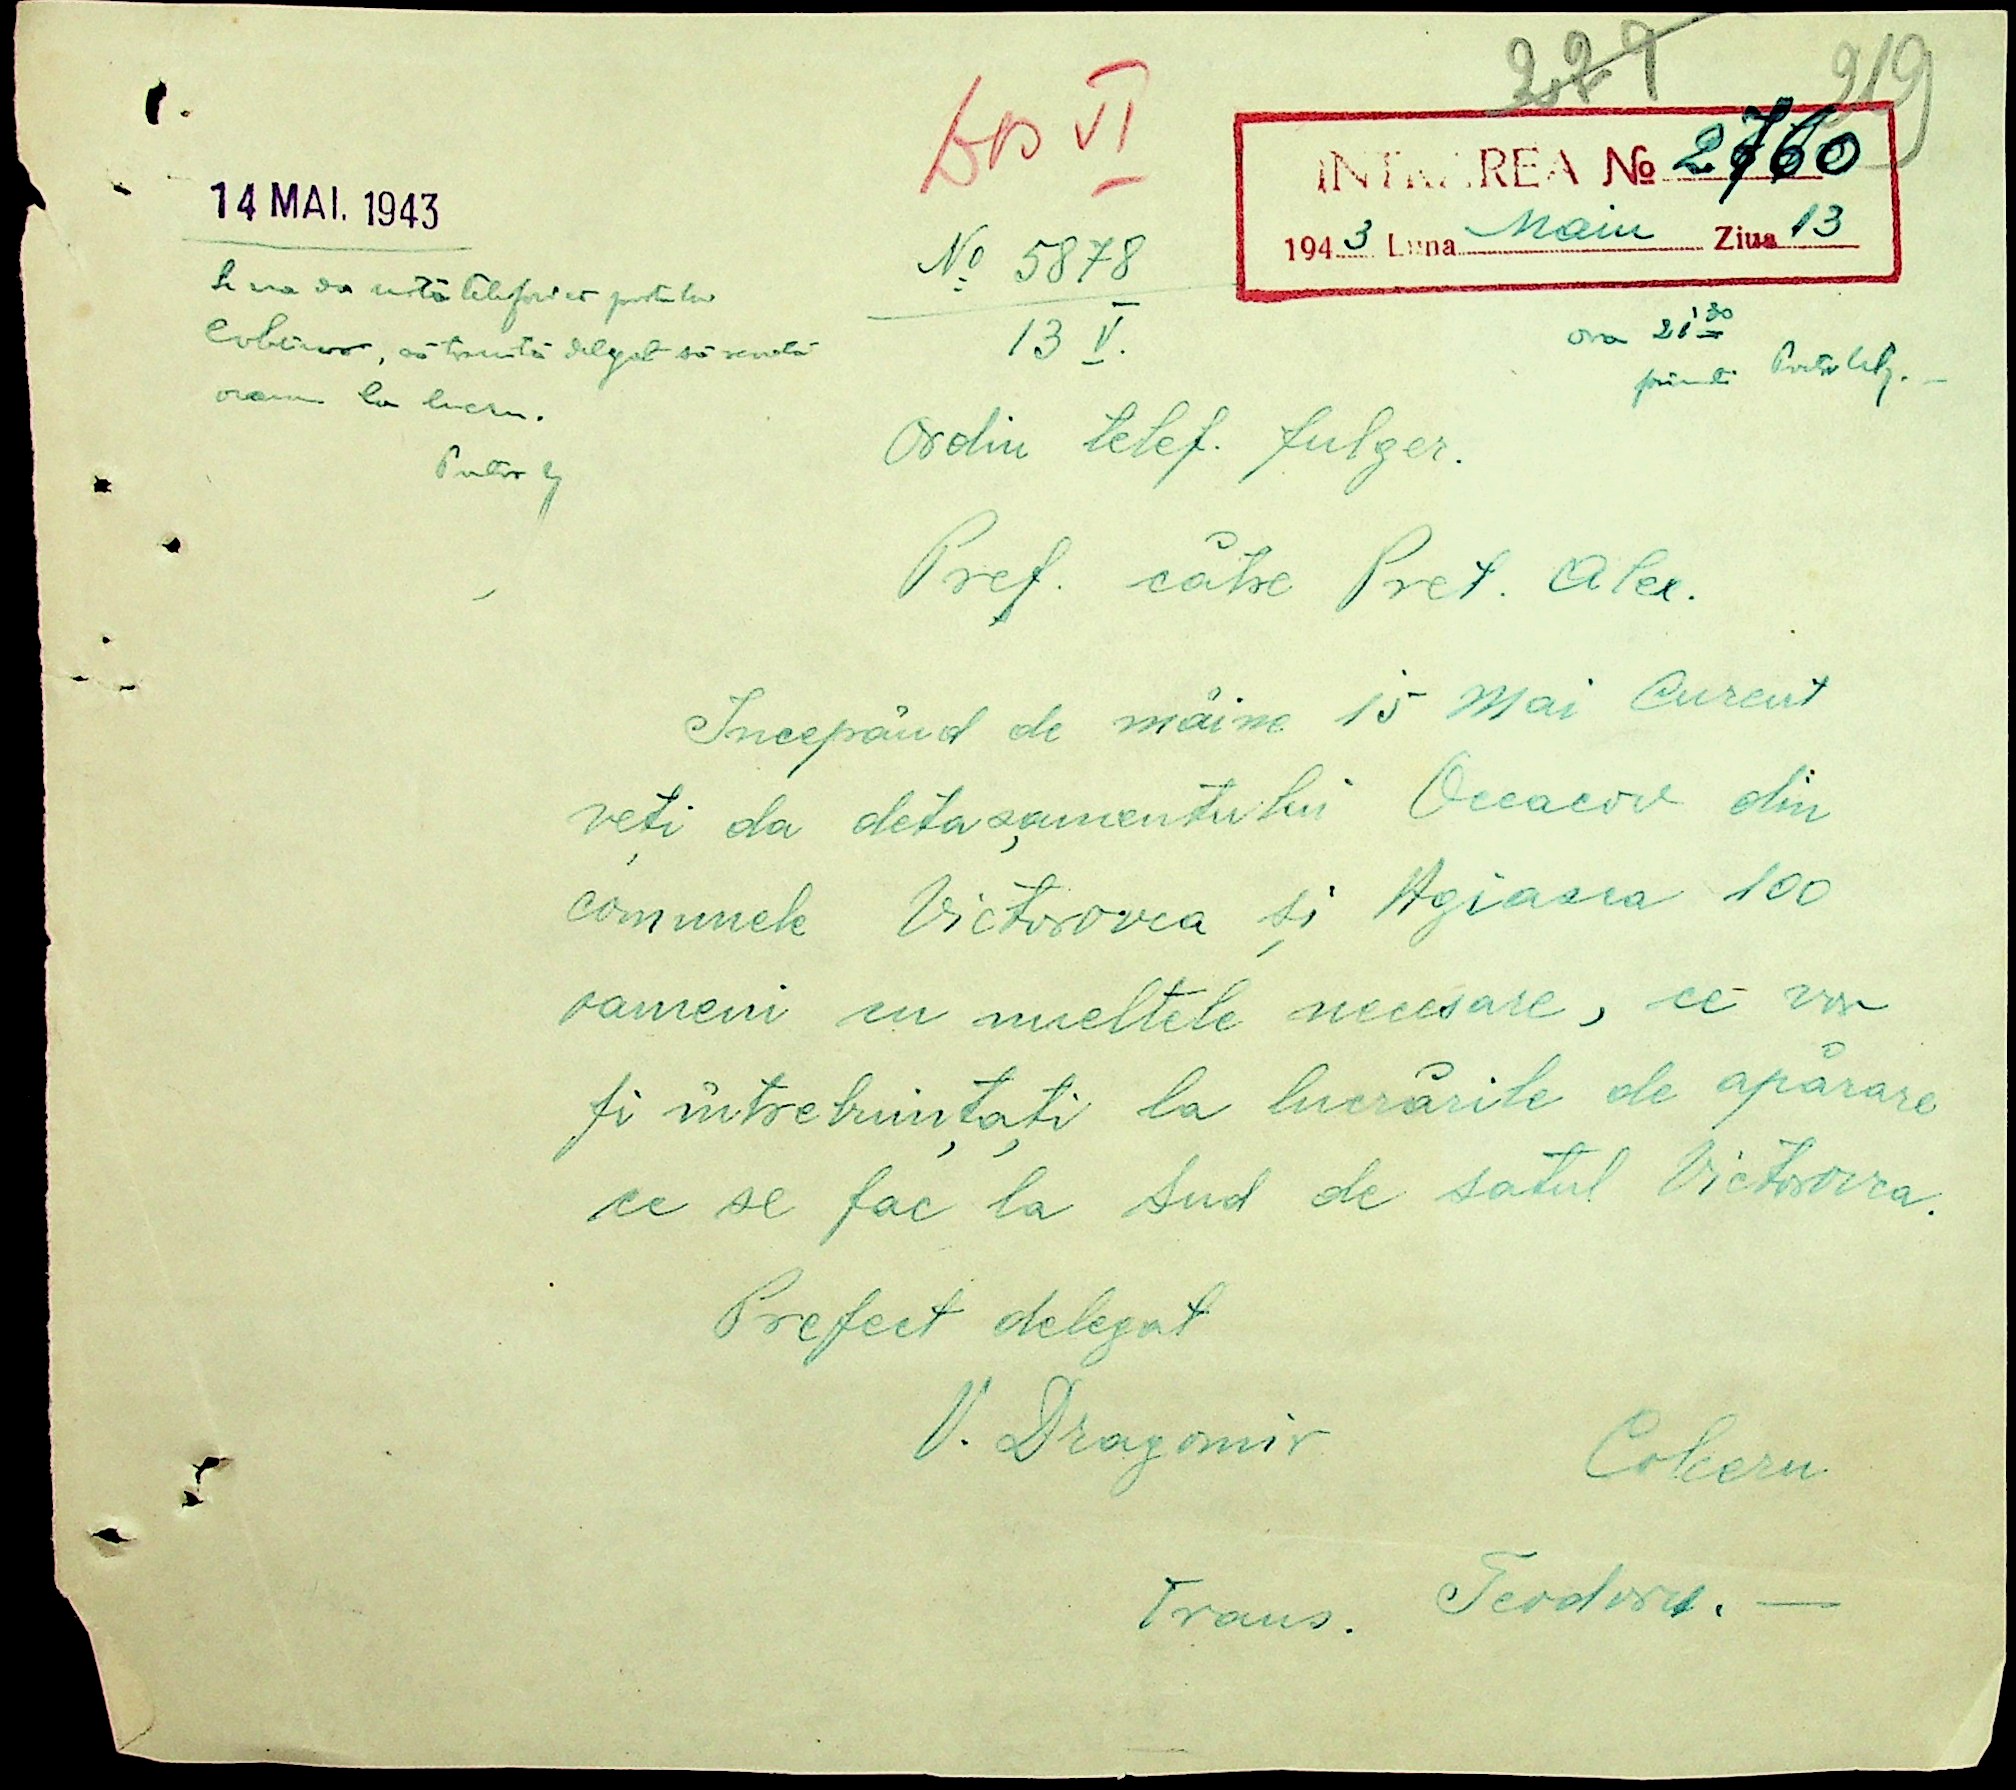 229 219
Dos VI
INTRAREA № 2760
1943 Luna Maiu Ziua 13
14 MAI. 1943
Nº 5878
13 V.
ora 21³⁰
primit
Se va da notă telefonică postului
să trimită delegat să scoată
oameni la lucru.
Ordin telef. fulger.
Pref. către Pret. Alex.
Incepând de mâine 15 Mai Curent
veți da detașamentului Oceacov din
comunele Victorovca și Agiasca 100
oameni cu uneltele necesare, ce vor
fi întrebuințați la lucrările de apărare
ce se fac la sud de satul Victorovca.
Prefect delegat
V. Dragomir
Trans. Teodoru. —